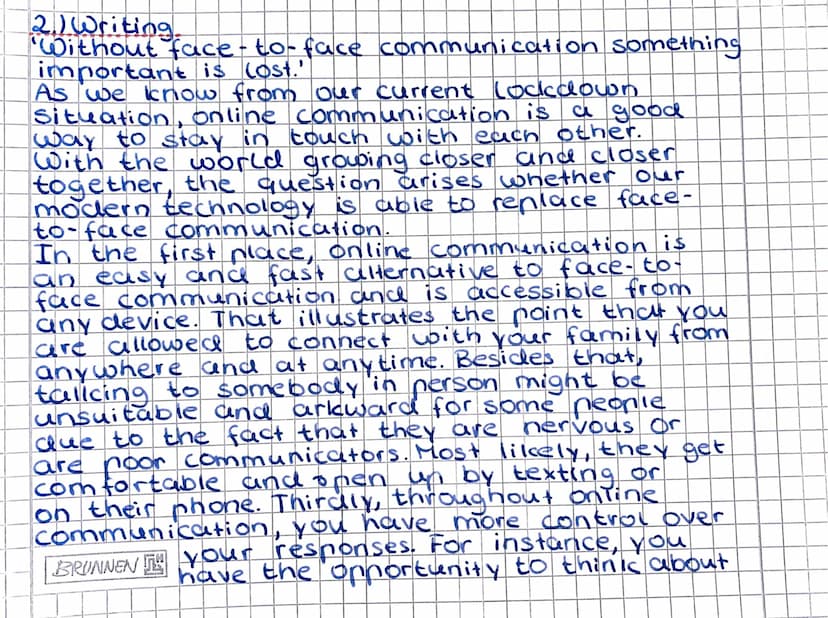 2.) Writing
'Without face-to-face communication something
important is lost.'
As we know from our current Lockdown
situation, online communication is a good
way to stay in touch with each other.
With the world growing closer and closer
together, the question arises whether our
modern technology is able to replace face-
to-face communication.
In the first place, online communication is
an easy and fast alternative to face-to-
face communication and is accessible from
any device. That illustrates the point that you
are allowed to connect with your family from
anywhere and at anytime. Besides that,
talking to somebody in person might be
unsuitable and arkward for some people
due to the fact that they are nervous or
are poor communicators. Most likely, they get
comfortable and open up by texting or
on their phone. Thirdly, throughout online
communication, you have more control over
your responses. For instance, you
BRUNNEN have the opportunity to think about